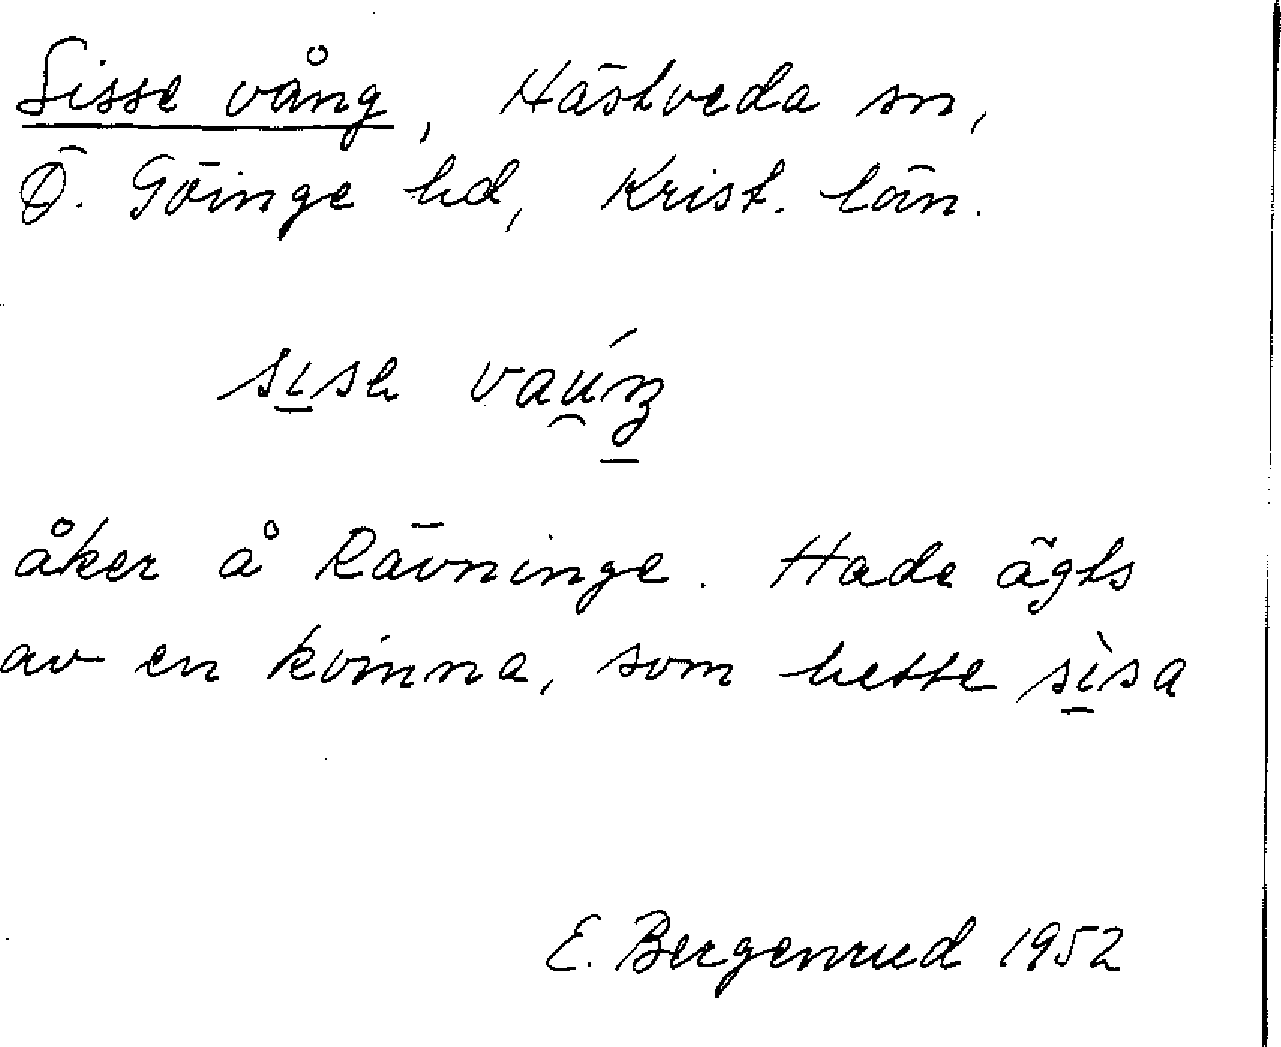 Sisse vång, Hästveda sn,
Ö. Göinge hd, Krist. län.
åker å Rävninge. Hade ägts
av en kvinna, som hette sìsa
E. Bergenrud 1952